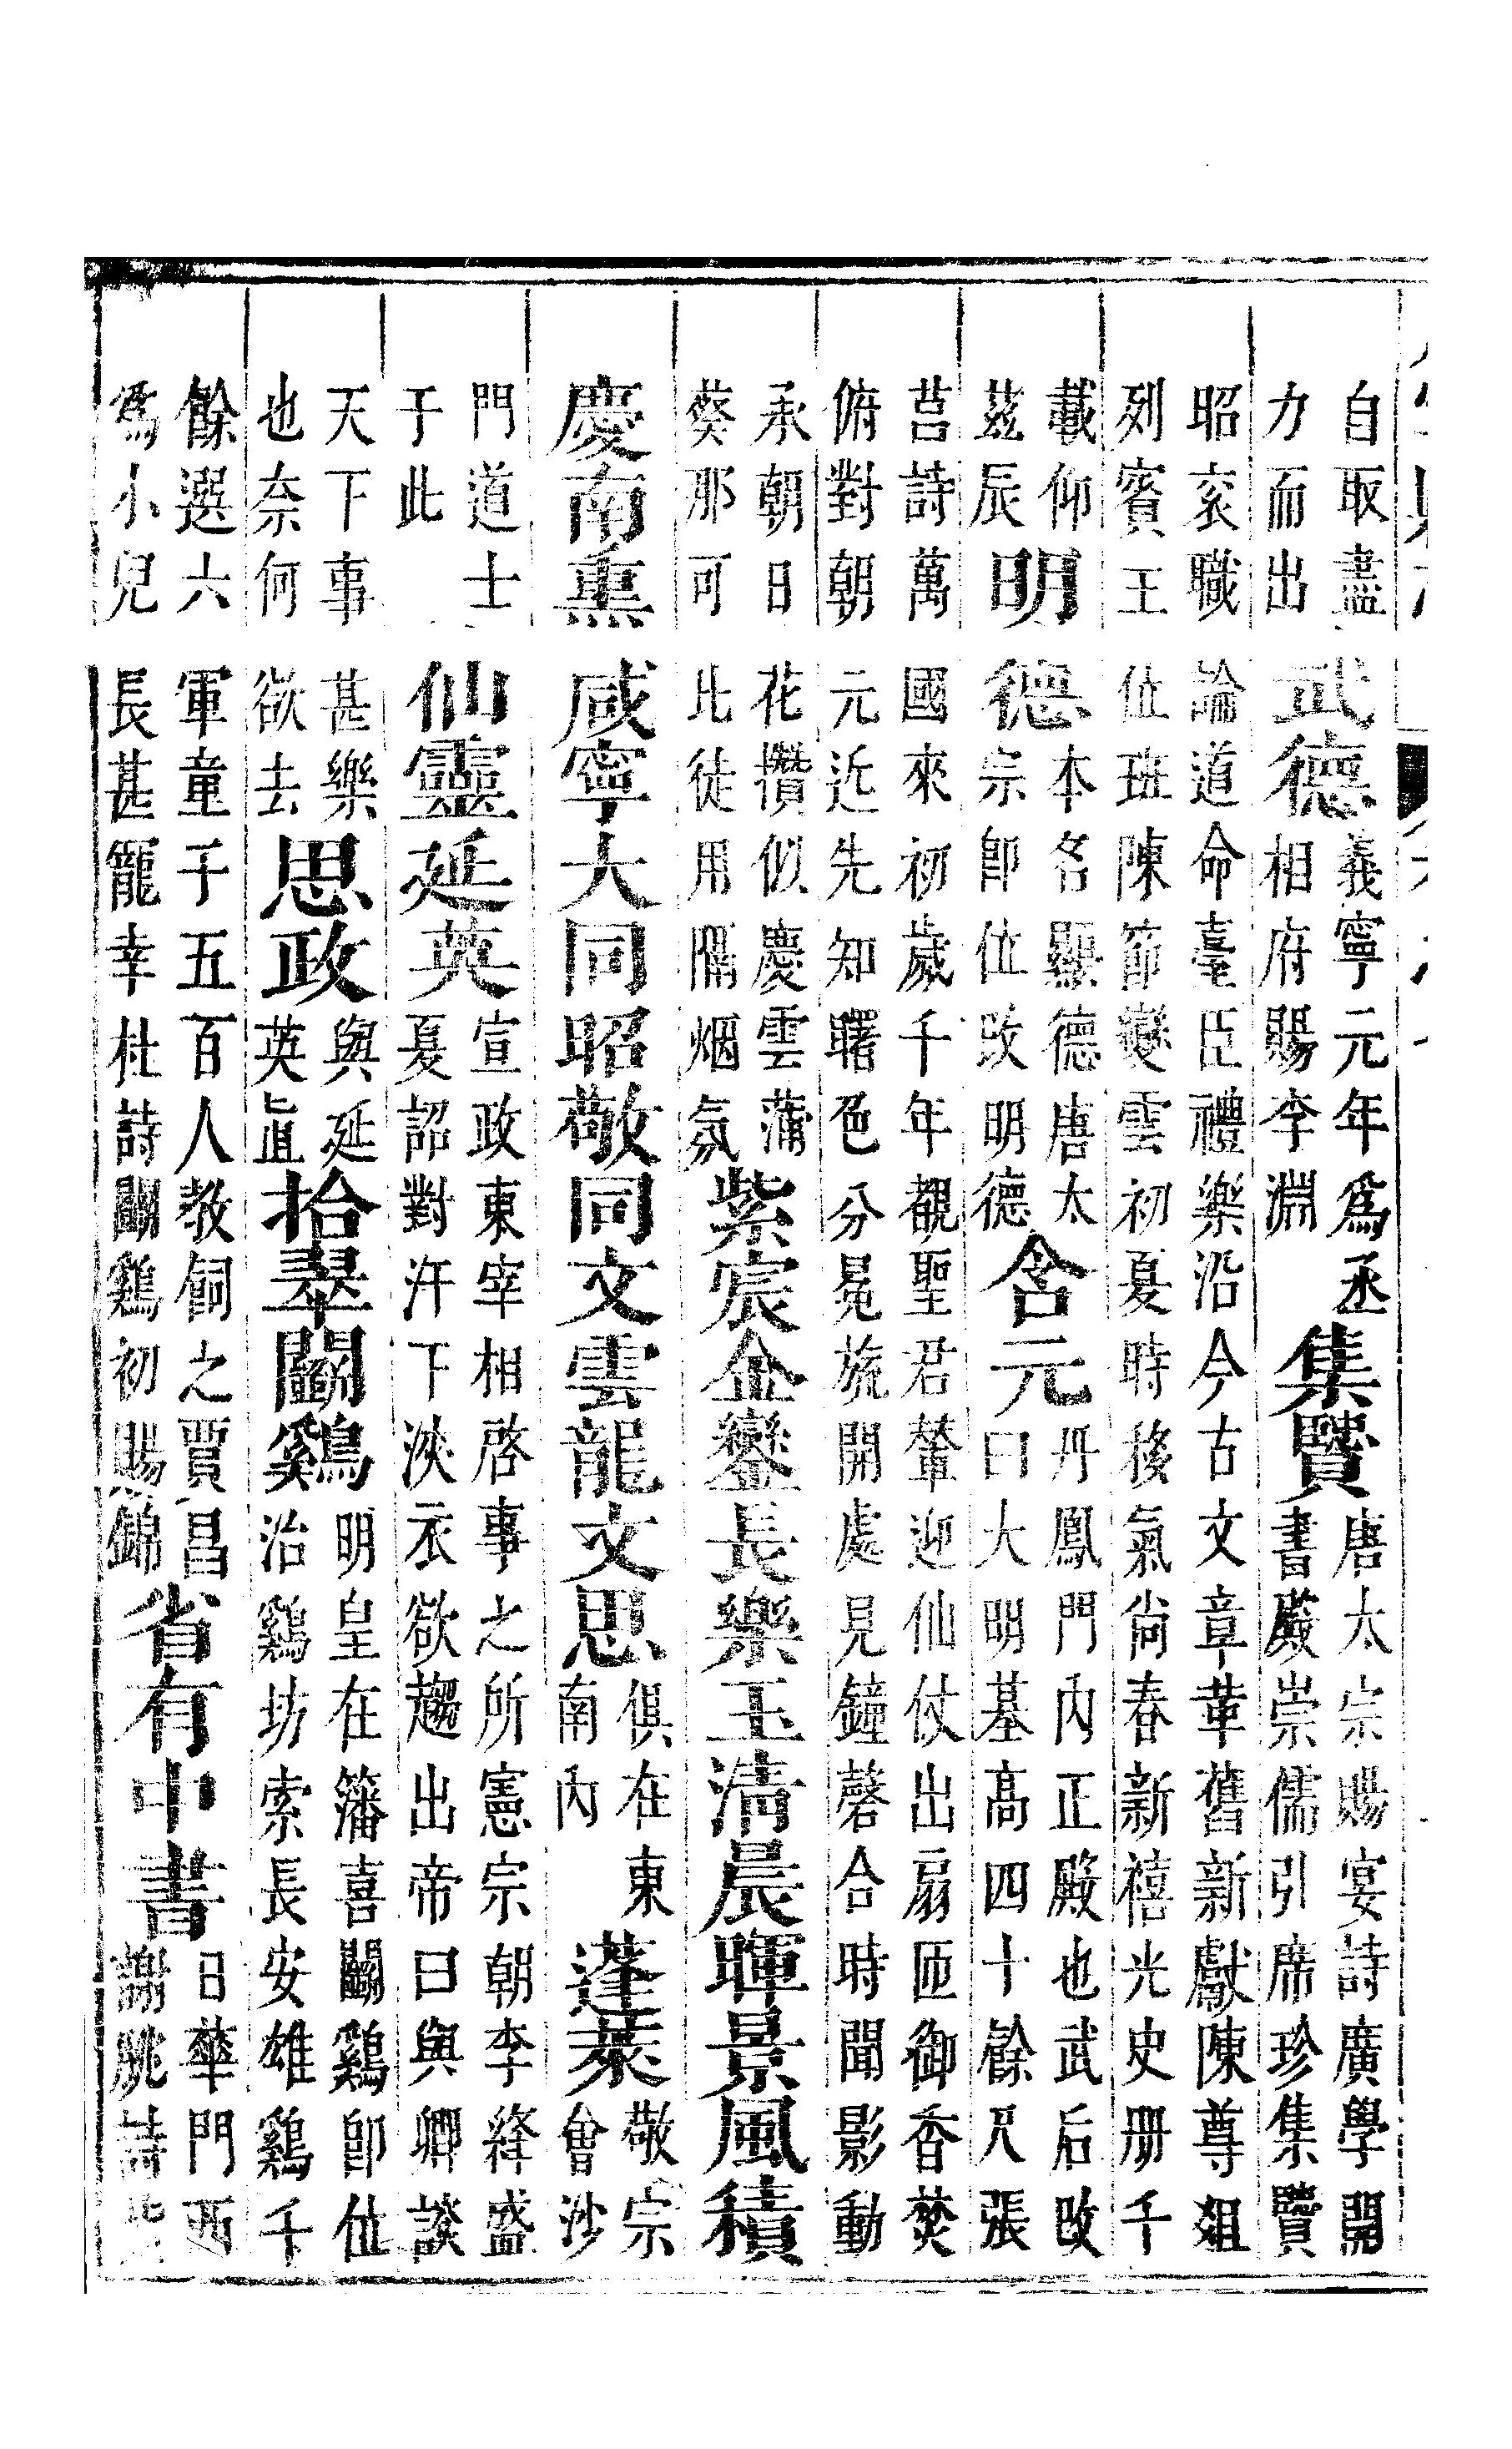 自取盡力而出武德義寧元年爲丞相府賜李淵集贒唐太宗賜宴詩廣學開書殿崇儒引席珍集贒
昭衮職論道命臺臣禮樂沿今古文章革舊新獻陳尊俎列賓王位班陳節變雲初夏時後氣尚春新禧光史册千
載仰茲辰明德本名顯德唐太宗卽位改明德含元丹鳳門内正殿也武后改曰大明基高四十餘尺張
莒詩萬國來初歲千年覩聖君輦迎仙仗出扇匝御香焚俯對朝元近先知曙色分冕旒開處見鐘磬合時聞影動
承朝日花攢似慶雲蒲葵那可比徒用隔烟氛紫宸金鑾長樂玉清晨暉景風積
慶南薰咸寧大同昭敬同文雲龍文思俱在東南内蓬萊敬宗會沙
門道士于此仙靈延英宣政東宰相啓事之所憲宗朝李絳盛夏詔對汗下浹衣欲趨出帝曰與卿談
天下事甚樂也奈何欲去思政與延英直拾翠鬭鷄明皇在籓喜鬭鷄卽位治鷄坊索長安雄鷄千
餘選六軍童子五百人教飼之賈昌爲小兒長甚寵幸杜詩鬭鷄初賜錦省有中書日華門西謝朓詩